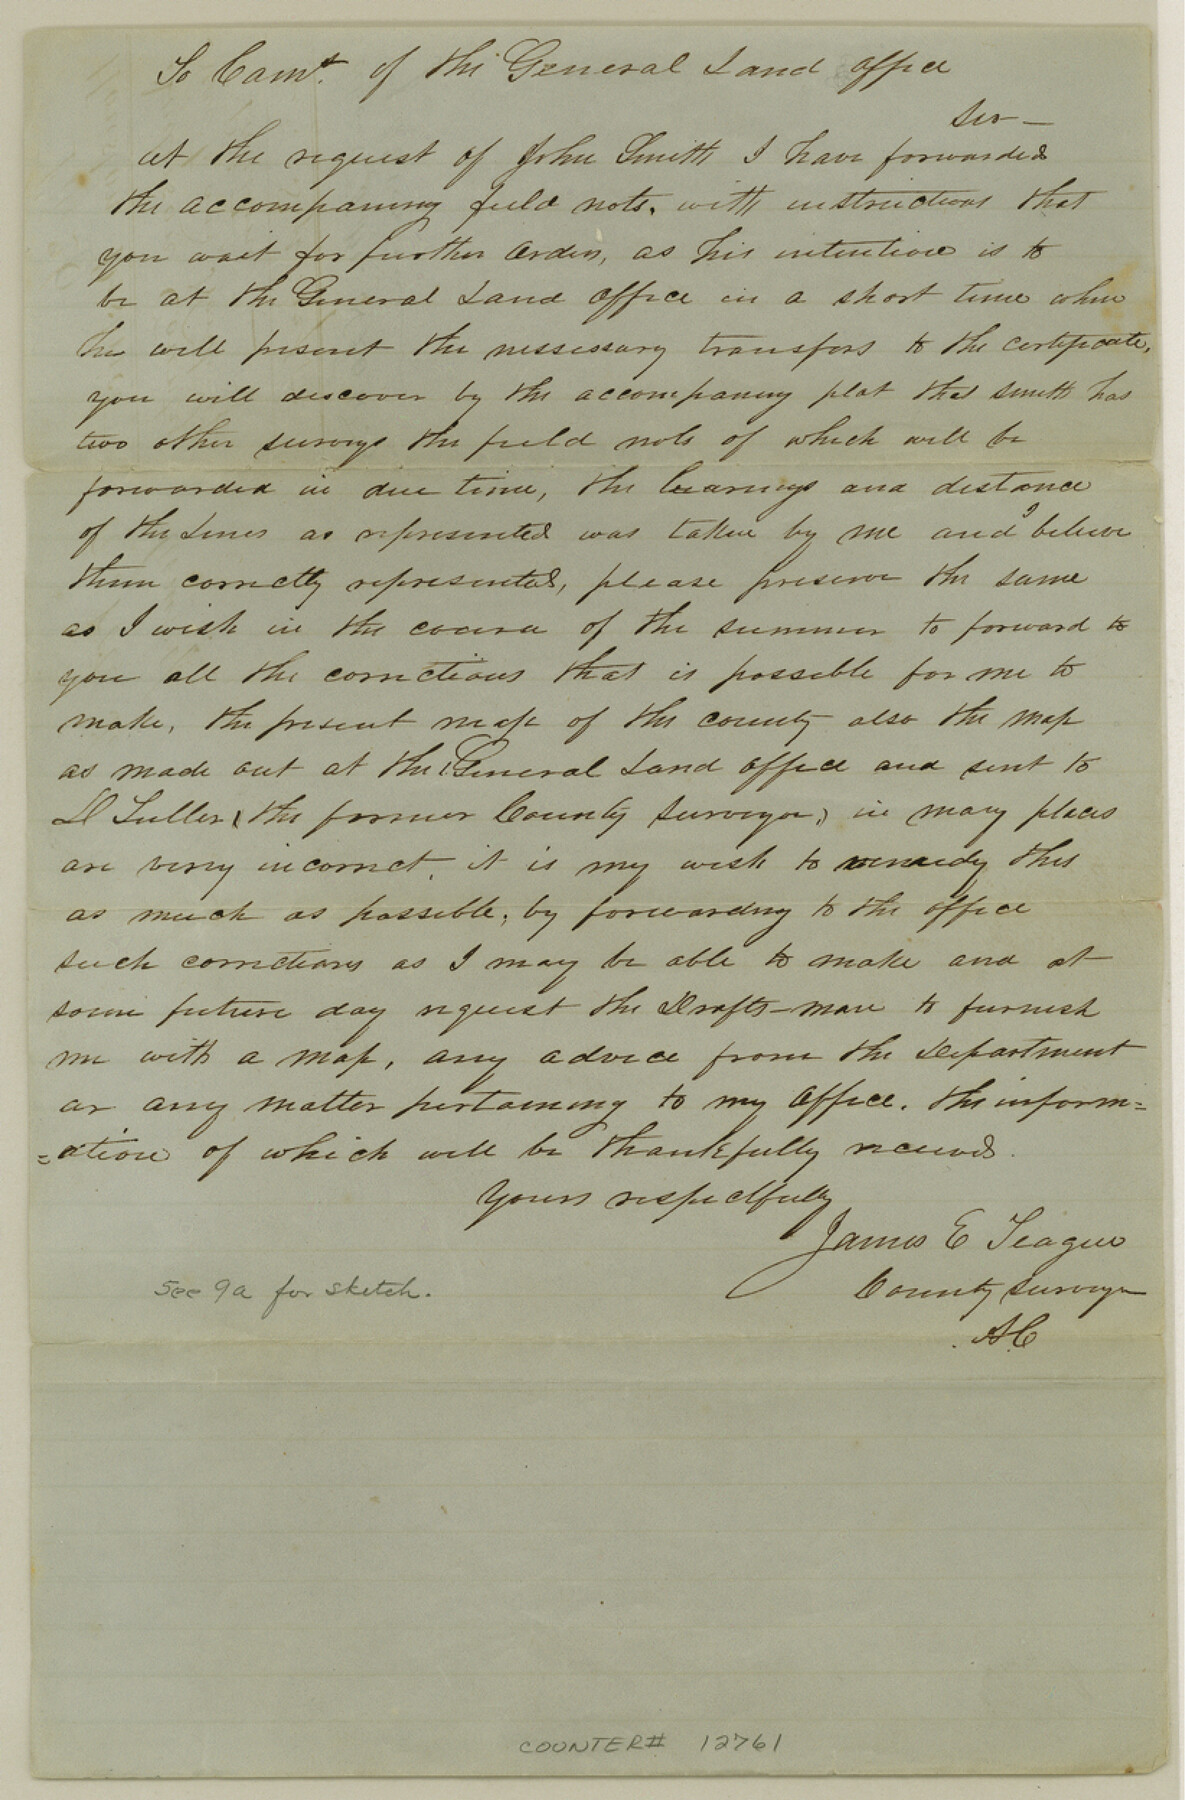 To Comr. of the General Land office
Sir —
at the request of John Smith I have forwarded
the accompaning field nots, with instructions that
you wait for further orders, as his intention is to
be at the General Land office in a short time when
he will present the nessessary transfers to the certificate,
you will discover by the accompaning plat that Smith has
two other surveys the field nots of which will be
forwarded in due time, the bearings and distance
of the Lines as represented was taken by me and I believe
them correctly represented, please preserve the same
as I wish in the course of the summer to forward to
you all the corrections that is possible for me to
make, the present map of the county also the map
as made out at the General Land office and sent to
D Tuller (the former County Surveyor) in many places
are very incorrect, it is my wish to remedy this
as much as possible, by forwarding to the office
such corrections as I may be able to make and at
some future day request the Drafts-man to furnish
me with a map, any advice from the Department
or any matter pertaining to my office. the inform=
=ation of which will be thankfully received.
Yours respectfully
James E Teague
County Surveyor
A.C
See 9a for sketch.
COUNTER# 12761